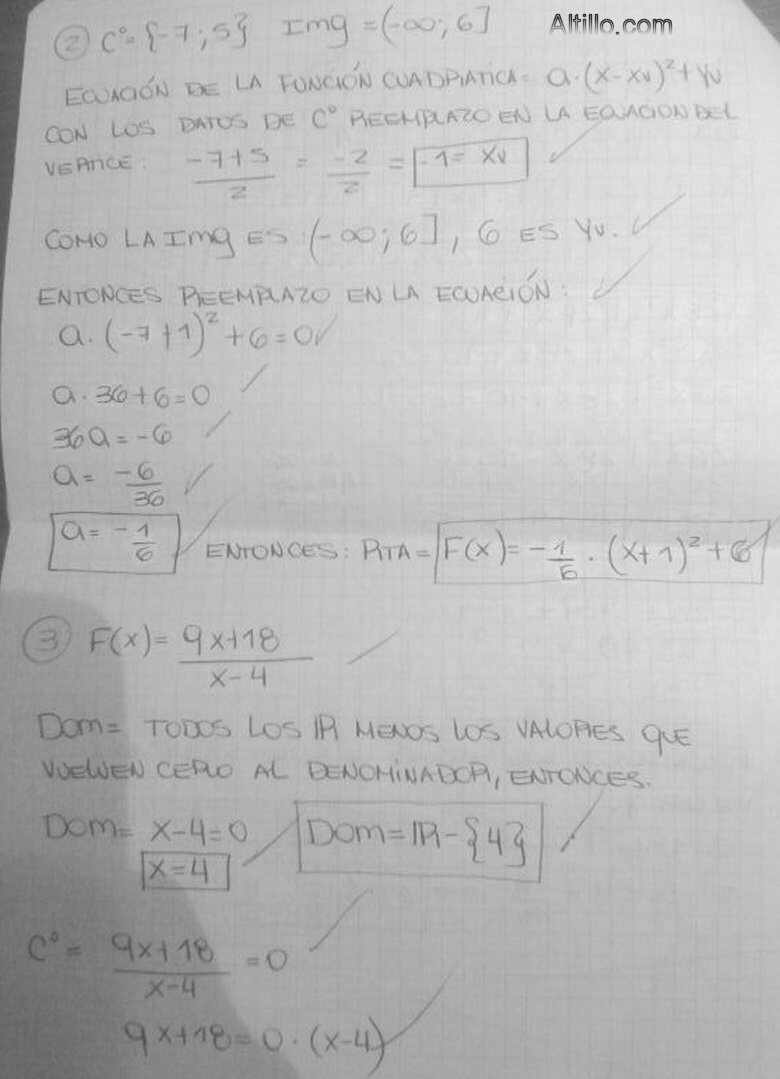 Altillo.com
② C°= {-7 ; 5} Img = (-∞ ; 6]
ECUACIÓN DE LA FUNCIÓN CUADRATICA= a·(x-xv)²+yv
CON LOS DATOS DE C° REEMPLAZO EN LA ECUACION DEL
VERTICE: -7+5/2 = -2/2 = -1= xv
COMO LA Img ES (-∞ ; 6] , 6 ES yv.
ENTONCES REEMPLAZO EN LA ECUACIÓN:
a·(-7+1)²+6=0
a·36+6=0
36a=-6
a= -6/36
a= -1/6 ENTONCES: RTA= F(x)= -1/6 · (x+1)²+6
③ F(x)= 9x+18/x-4
Dom= TODOS LOS IR MENOS LOS VALORES QUE
VUELVEN CERO AL DENOMINADOR, ENTONCES.
Dom= x-4=0 Dom=IR-{4}
x=4
C°= 9x+18/x-4 =0
9x+18=0·(x-4)